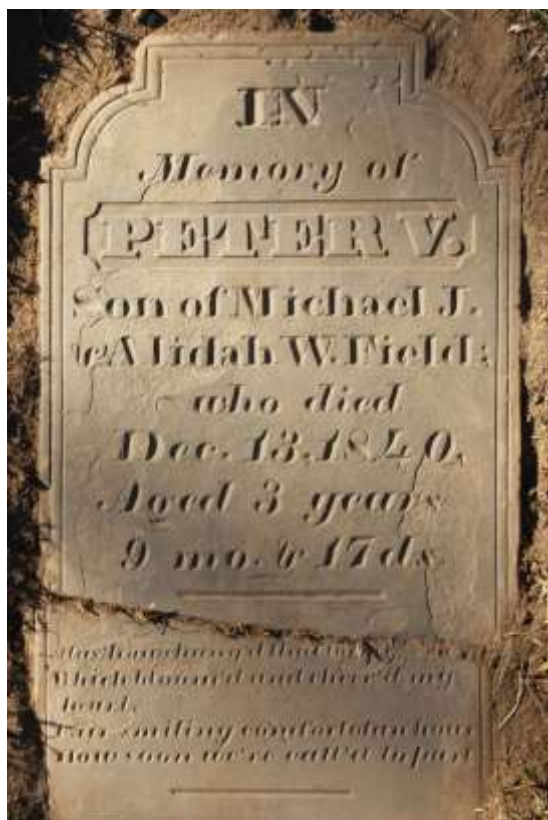 IN
Memory of
PETER V.
Son of Michael J.
& Alidah W. Field;
who died
Dec. 13. 1840,
Aged 3 years
9 mo. & 17 ds
Alas how chang'd that
Which bloom'd and cheer'd my
heart.
smiling comfort an hour
How soon we're call'd to part